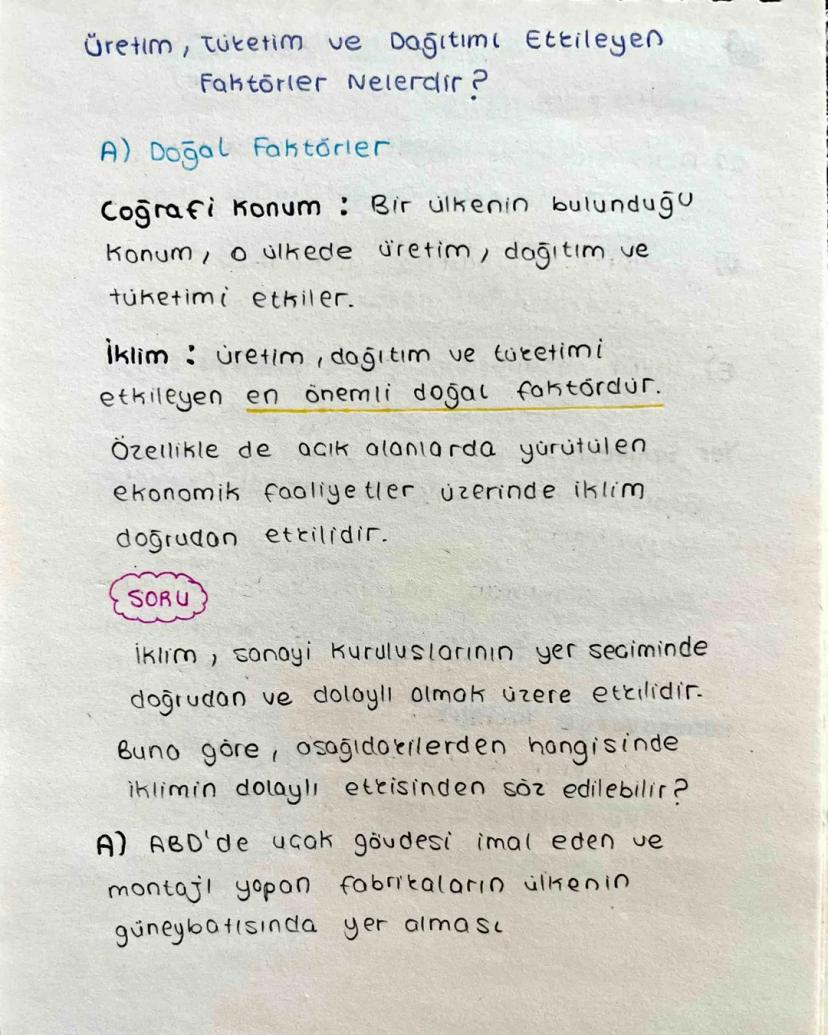 Üretim, Tüketim ve Dağıtımı Etkileyen
Faktörler Nelerdir?
A) Doğal Faktörler
Coğrafi Konum : Bir ülkenin bulunduğu
konum, o ülkede üretim, dağıtım ve
tüketimi etkiler.
İklim : üretim, dağıtım ve tüketimi
etkileyen en önemli doğal faktördür.
Özellikle de acık alanlarda yürütülen
ekonomik faaliyetler üzerinde iklim
doğrudan etkilidir.
SORU
İklim, sanayi kuruluslarının yer seciminde
doğrudan ve dolaylı olmak üzere etkilidir.
Buna göre, asağıdakilerden hangisinde
iklimin dolaylı etkisinden söz edilebilir?
A) ABD'de ucak gövdesi imal eden ve
montajı yapan fabrikaların ülkenin
güneybatısında yer alması